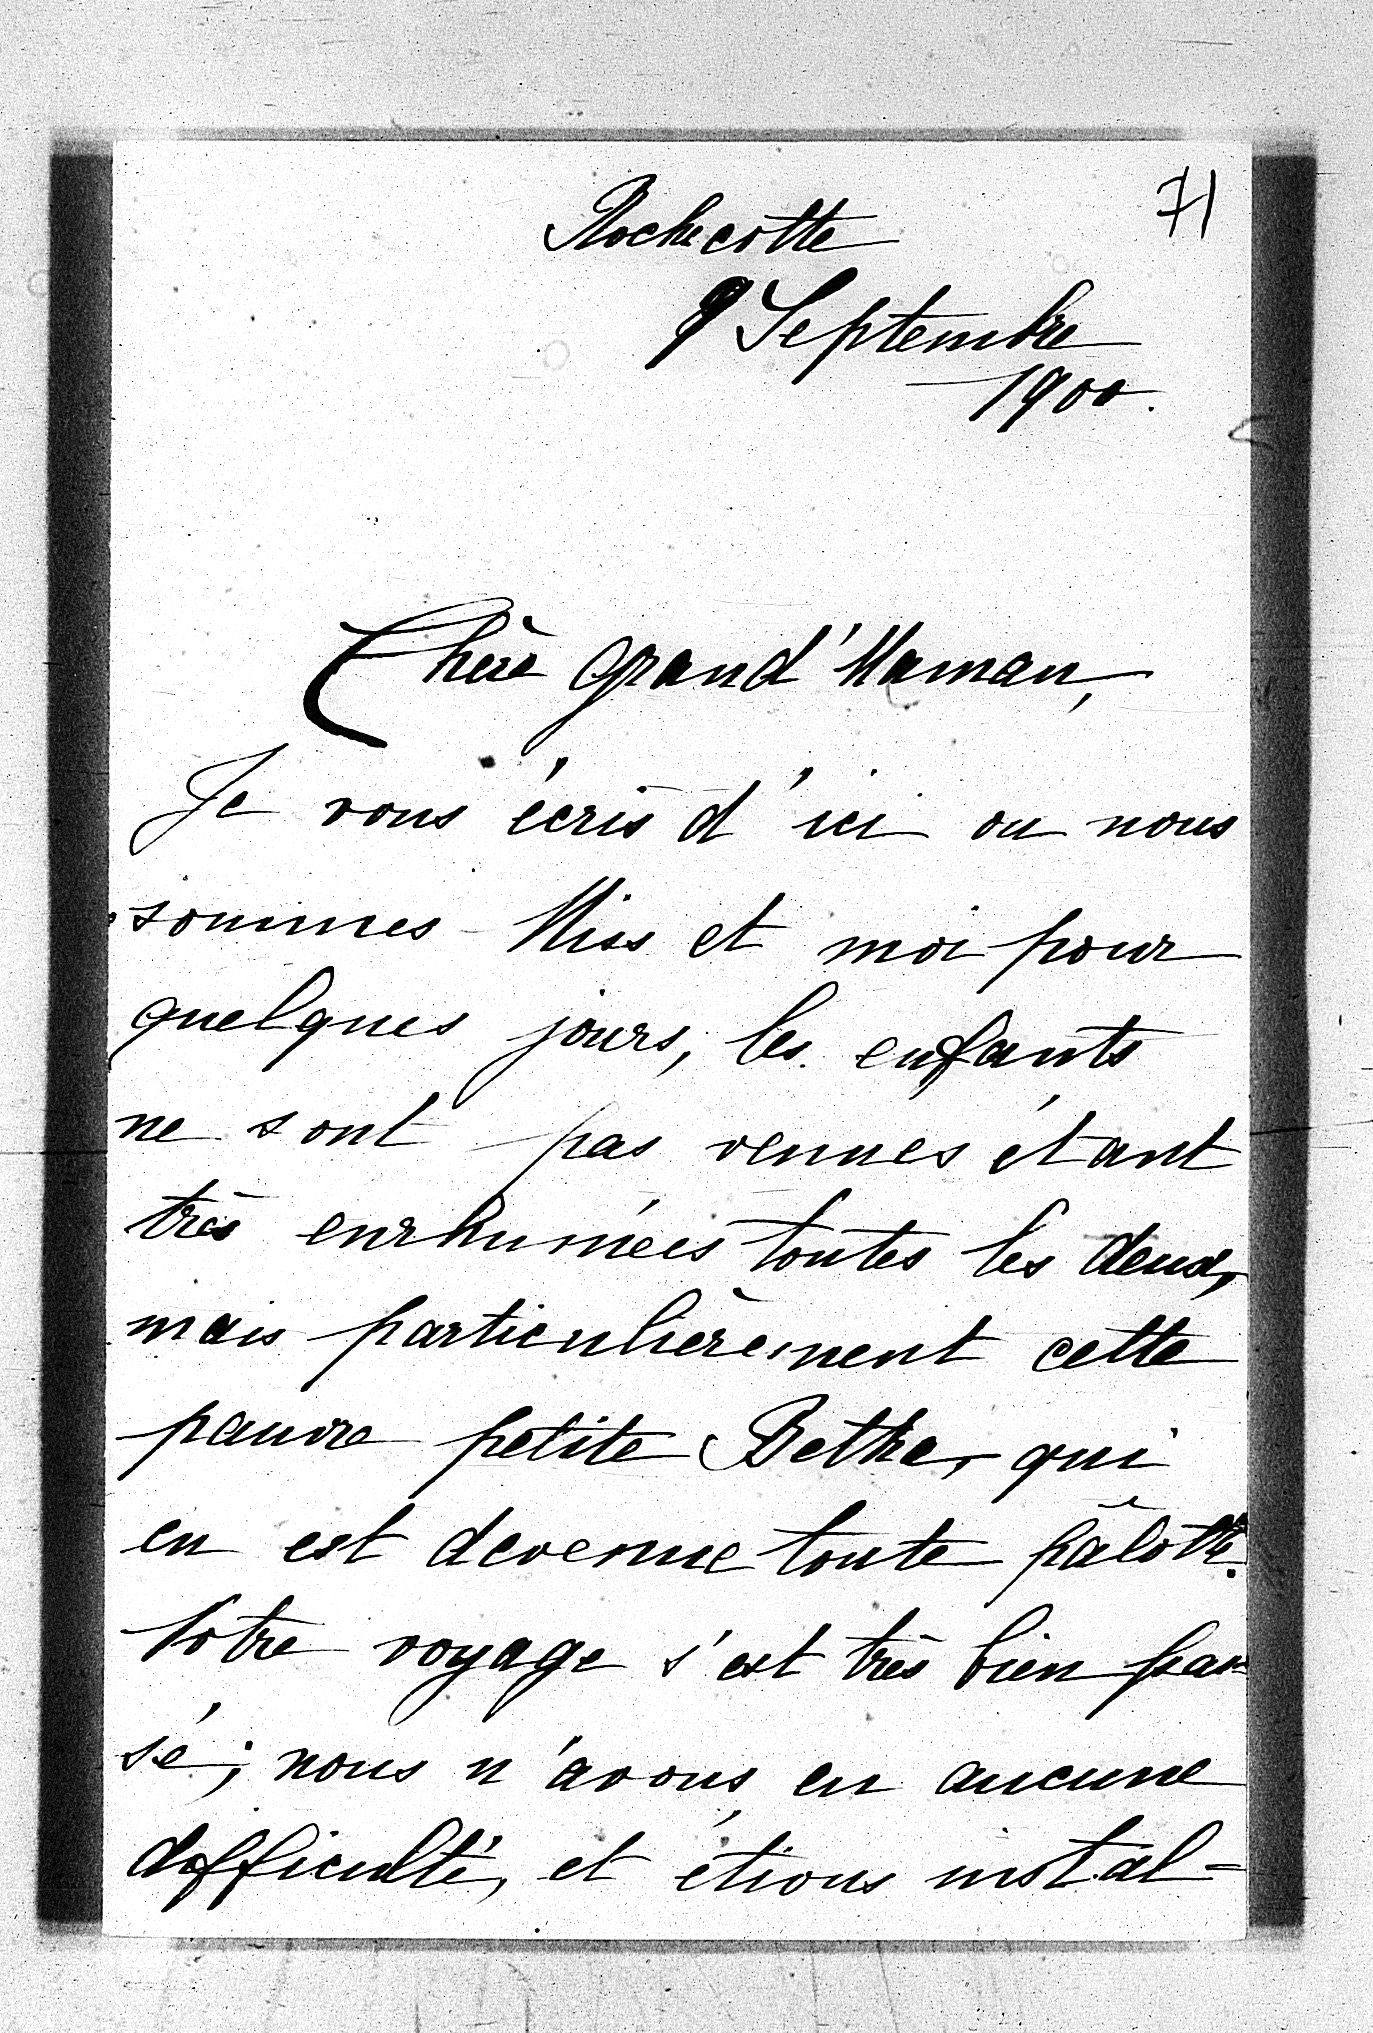 71
Rochecotte
9 Septembre
1900.
Chère Grand'Maman,
Je vous écris d'ici ou nous
sommes Miss et moi pour
quelques jours, les enfants
ne sont pas venues étant
très enrhumées toutes les deux,
mais particulièrement cette
pauvre petite Bethe, qui
en est devenue toute pâlotte.
Notre voyage s'est très bien pas-
sé; nous n'avons eu aucune
difficulté, et étions instal=